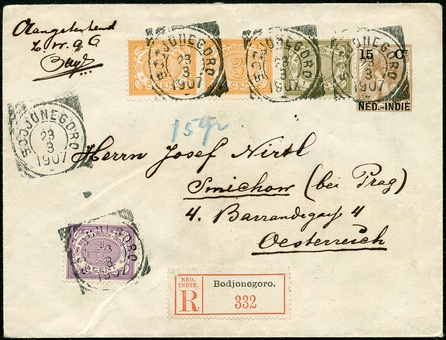 Aangetekend
BODJONEGORO
23
3
1907
BODJONEGORO
23
3
1907
15 Ct
NED.-INDIË
BODJONEGORO
23
3
1907
15gr
Herrn Josef Nirtl
Smichow (bei Prag)
4. Barrandegasse 4
Oesterreich
BODJONEGORO
3
1907
CENT
NED.
INDIE.
R
Bodjonegoro.
332